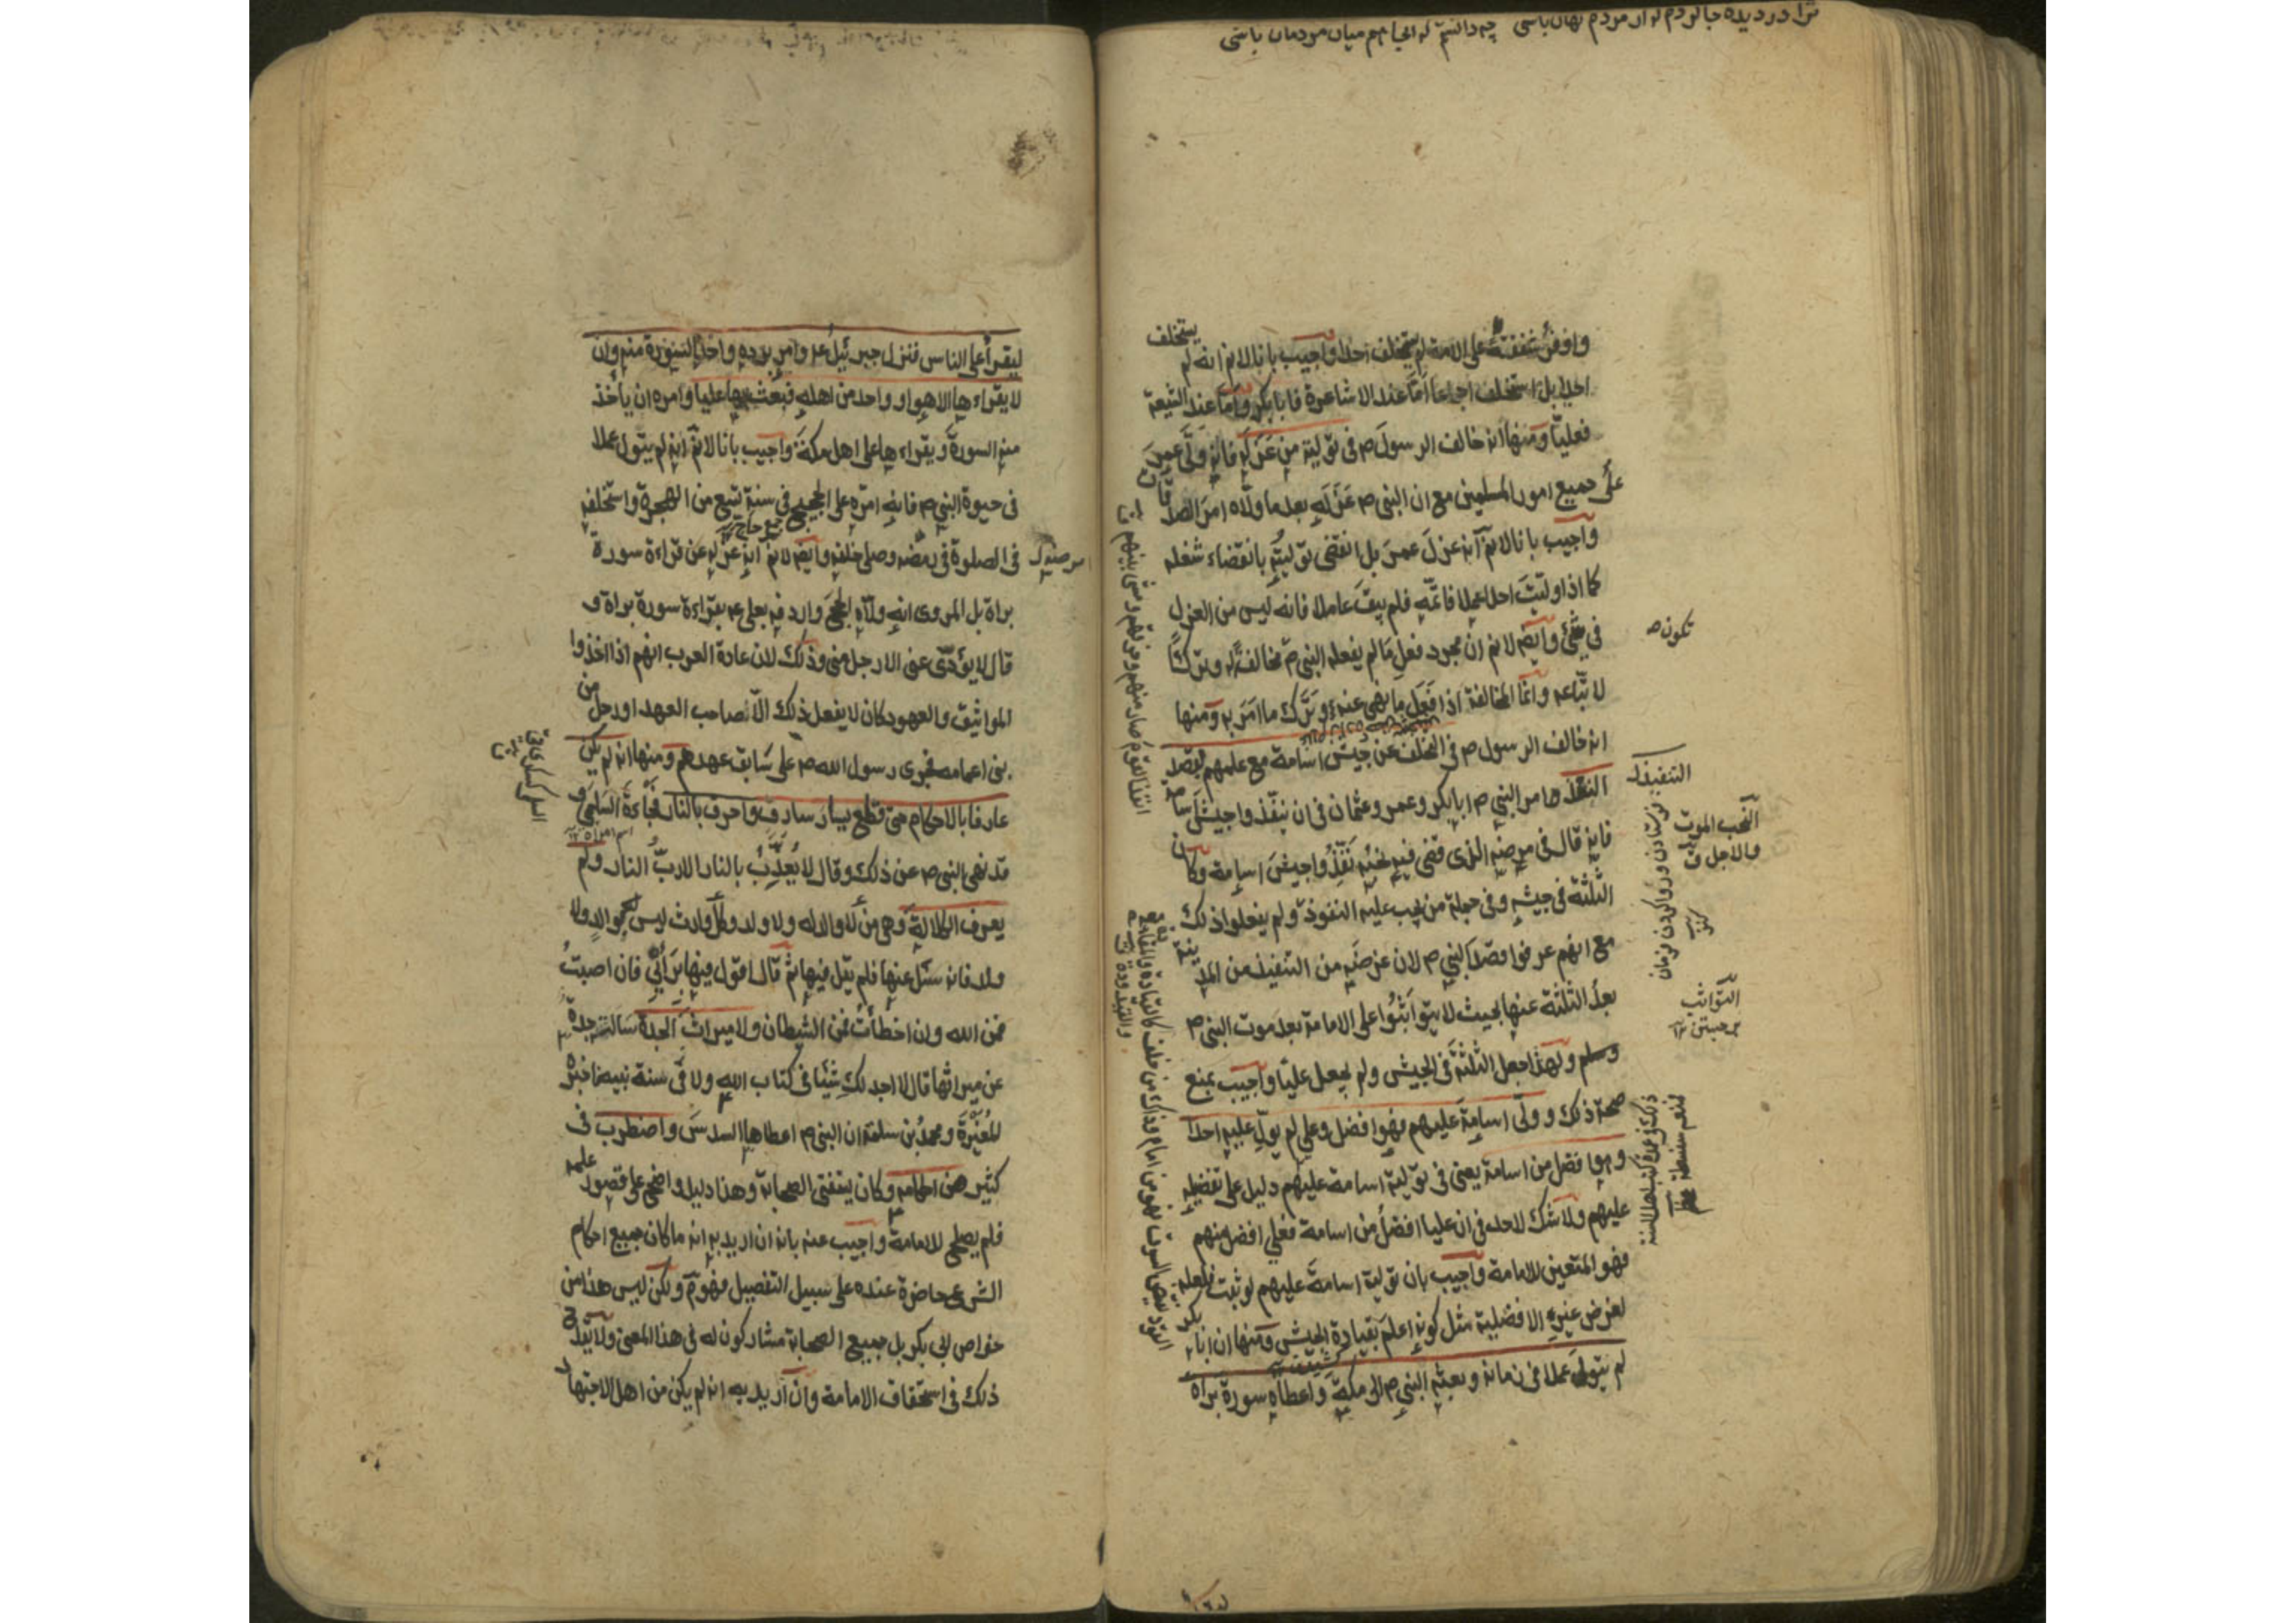 ترا در دیده جا کردم که از مردم نهان باشی چه دانستم که اینجا هم میان مردمان باشی
واوفى شفقته على الامة لم يستخلف احدا واجيب بانا لانم انه لم يستخلف
احدا بل استخلف اجماعا اما عند الاشاعرة فابابكر واما عند الشيعة
فعليا ومنها انه خالف الرسول ص فى تولية من عزله فانه ولى عمر
على جميع امور المسلمين مع ان النبى ص عزله بعد ما ولاه امر الصدقات
واجيب بانا لانم انه عزل عمر بل انقضى توليته بانقضاء شغله
كما اذا وليت احدا عملا فاتمه فلم يبق عاملا فانه ليس من العزل
فى شئ وايض لانم ان مجرد فعل ما لم يفعله النبى ص مخالفة له وتركا
لاتباعه وانما المخالفة اذا فعل ما نهى عنه وترك ما امر به ومنها
انه خالف الرسول ص فى التخلف عن جيش اسامة مع علمهم بقصد
التنفيذ وامر النبى ص ابابكر وعمر وعثمان فى ان ينفذوا جيش اسامة
فانه قال فى مرضه الذى قضى فيه نحبه نفذوا جيش اسامة وكان
الثلثة فى جيشه وفى جملة من يجب عليه النفوذ ولم يفعلوا ذلك
مع انهم عرفوا قصد النبى ص لان غرضه من التنفيذ من المدينة
بعد الثلثة عنها بحيث لا يتواثبوا على الامامة بعد موت النبى ص
وسلم ولهذا جعل الثلثة فى الجيش ولم يجعل عليا واجيب بمنع
صحة ذلك وولى اسامة عليهم فهو افضل وعلى لم يول عليه احدا
وهو افضل من اسامة يعنى فى تولية اسامة عليهم دليل على تفضيله
عليهم ولا شك لاحد فى ان عليا افضل من اسامة فعلي افضل منهم
فهو المتعين للامامة واجيب بان تولية اسامة عليهم لو ثبت فلعله
لغرض غير الافضلية مثل كونه اعلم بقيادة الجيش ومنها ان ابابكر
لم يتول عملا فى زمانه وبعثه النبى ص الى مكة واعطاه سورة براة
تكون ص
التنفيذ
فرستادن و روا کردن فرمان
النحب الموت
والاجل ق
كنز
التواثب
برجستن ١٢
ليقرأ على الناس فنزل جبرئيل ع وامر برده واخذ السورة منه وان
لا يقراءها الا هو او واحد من اهله فبعث بها عليا وامره ان يأخذ
منه السورة ويقراءها على اهل مكة واجيب بانا لانم انه لم يتول عملا
فى حيوة النبى ص فانه امره على الحجيج فى سنة تسع من الهجرة واستخلفه
جمع حاج
فى الصلوة فى مرضه وصلى خلفه وايض لانم انه عزله عن قراءة سورة
براة بل المروى انه ولاه الحج واردفه بعلى ع بقراءة سورة براة و
قال لا يؤدى عنى الا رجل منى وذلك لان عادة العرب انهم اذا اخذوا
المواثيق والعهود كان لا يفعل ذلك الا صاحب العهد او رجل من
بنى اعمامه فجرى رسول الله ص على سابق عهدهم ومنها انه لم يكن
عارفا بالاحكام حتى قطع يسار سارق واحرق بالنار فجاءة السلمى و
قد نهى النبى ص عن ذلك وقال لا يعذب بالنار الا رب النار ولم
يعرف الكلالة وهى من لا والد له ولا ولد وكل وارث ليس بوالد ولا
ولد فانه سئل عنها فلم يقل فيها ثم قال اقول فيها برأيى فان اصبت
فمن الله وان اخطأت فمن الشيطان ولا ميراث الجدة سالته جدة
عن ميراثها قال لا اجد لك شيئا فى كتاب الله ولا فى سنة نبيه فاخبره
المغيرة ومحمد بن سلمة ان النبى ص اعطاها السدس واضطرب فى
كثير من احكامه وكان يستفتى الصحابة وهذا دليل واضح على قصور علمه
فلم يصلح للامامة واجيب عنه بانه ان اريد به انه ما كان جميع احكام
الشرع حاضرة عنده على سبيل التفصيل فهو م ولكن ليس هذا من
خواص ابى بكر بل جميع الصحابة مشاركون له فى هذا المعنى ولا يقدح
ذلك فى استحقاق الامامة وان اريد به انه لم يكن من اهل الاجتهاد